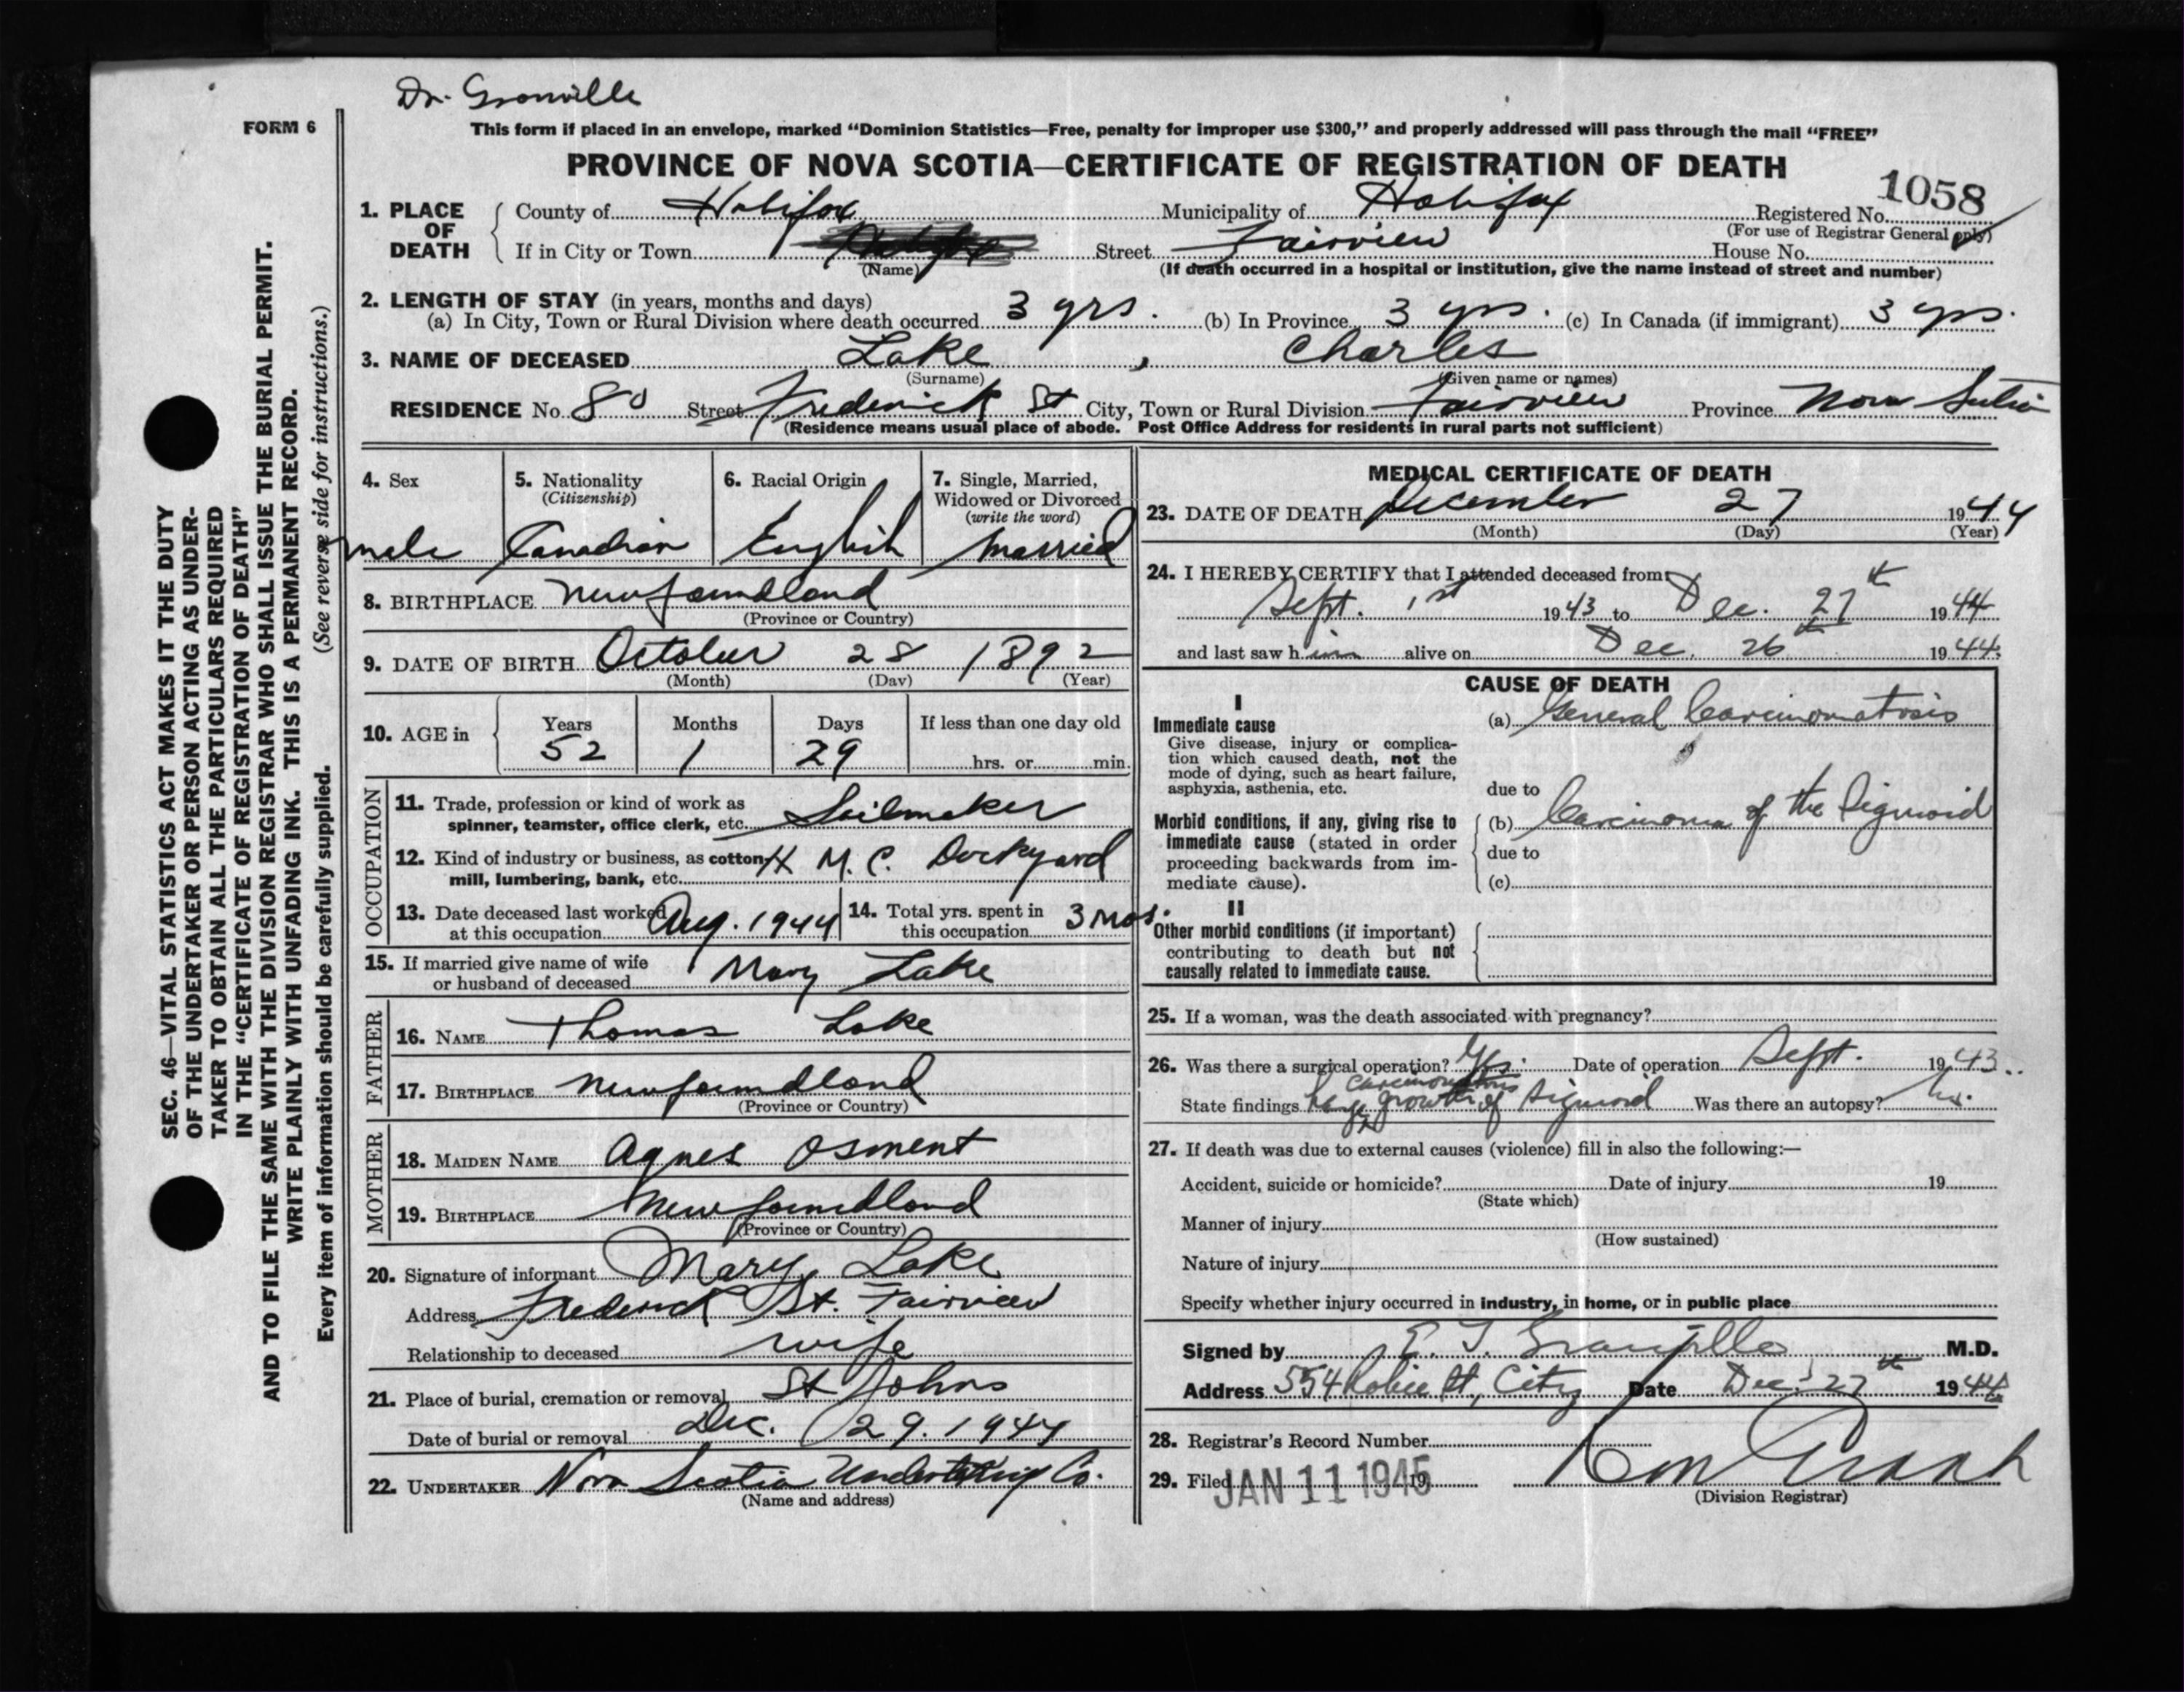 Dr. Granville
FORM 6
This form if placed in an envelope, marked "Dominion Statistics—Free, penalty for improper use $300," and properly addressed will pass through the mail "FREE"
PROVINCE OF NOVA SCOTIA—CERTIFICATE OF REGISTRATION OF DEATH
1058
1. PLACE OF DEATH County of Halifax Municipality of Halifax Registered No.
(For use of Registrar General only)
If in City or Town Street Fairview House No.
(Name) (If death occurred in a hospital or institution, give the name instead of street and number)
2. LENGTH OF STAY (in years, months and days)
(a) In City, Town or Rural Division where death occurred 3 yrs. (b) In Province 3 yrs. (c) In Canada (if immigrant) 3 yrs.
3. NAME OF DECEASED Lake, Charles
(Surname) (Given name or names)
RESIDENCE No. 80 Street Frederick St City, Town or Rural Division Fairview Province Nova Scotia
(Residence means usual place of abode. Post Office Address for residents in rural parts not sufficient)
4. Sex
male
5. Nationality
(Citizenship)
Canadian
6. Racial Origin
English
7. Single, Married,
Widowed or Divorced
(write the word)
Married
8. BIRTHPLACE Newfoundland
(Province or Country)
9. DATE OF BIRTH October 28 1892
(Month) (Day) (Year)
10. AGE in Years Months Days If less than one day old
52 1 29 hrs. or min.
OCCUPATION
11. Trade, profession or kind of work as
spinner, teamster, office clerk, etc. Sailmaker
12. Kind of industry or business, as cotton H M. C. Dockyard
mill, lumbering, bank, etc.
13. Date deceased last worked
at this occupation Aug. 1944
14. Total yrs. spent in
this occupation 3 mos.
15. If married give name of wife
or husband of deceased Mary Lake
FATHER
16. NAME Thomas Lake
17. BIRTHPLACE Newfoundland
(Province or Country)
MOTHER
18. MAIDEN NAME Agnes Osment
19. BIRTHPLACE Newfoundland
(Province or Country)
20. Signature of informant Mary Lake
Address Frederick St. Fairview
Relationship to deceased wife
21. Place of burial, cremation or removal St Johns
Date of burial or removal Dec. 29. 1944
22. UNDERTAKER Nova Scotia Undertaking Co.
(Name and address)
MEDICAL CERTIFICATE OF DEATH
23. DATE OF DEATH December 27 1944
(Month) (Day) (Year)
24. I HEREBY CERTIFY that I attended deceased from:
Sept. 1st 1943 to Dec. 27th 1944
and last saw h im alive on Dec. 26th 1944
CAUSE OF DEATH
I
Immediate cause
Give disease, injury or complica-
tion which caused death, not the
mode of dying, such as heart failure,
asphyxia, asthenia, etc.
(a) General Carcinomatosis
due to
Morbid conditions, if any, giving rise to
immediate cause (stated in order
proceeding backwards from im-
mediate cause).
(b) Carcinoma of the Sigmoid
due to
(c)
II
Other morbid conditions (if important)
contributing to death but not
causally related to immediate cause.
25. If a woman, was the death associated with pregnancy?
26. Was there a surgical operation? Yes. Date of operation Sept. 1943
State findings Large carcinomatous growth of Sigmoid Was there an autopsy? No.
27. If death was due to external causes (violence) fill in also the following:—
Accident, suicide or homicide? Date of injury 19
(State which)
Manner of injury
(How sustained)
Nature of injury
Specify whether injury occurred in industry, in home, or in public place
Signed by E. T. Granville M.D.
Address 554 Robie St, City Date Dec. 27th 1944
28. Registrar's Record Number
29. Filed JAN 11 1945 19
(Division Registrar)
SEC. 46—VITAL STATISTICS ACT MAKES IT THE DUTY
OF THE UNDERTAKER OR PERSON ACTING AS UNDER-
TAKER TO OBTAIN ALL THE PARTICULARS REQUIRED
IN THE "CERTIFICATE OF REGISTRATION OF DEATH"
AND TO FILE THE SAME WITH THE DIVISION REGISTRAR WHO SHALL ISSUE THE BURIAL PERMIT.
WRITE PLAINLY WITH UNFADING INK. THIS IS A PERMANENT RECORD.
Every item of information should be carefully supplied. (See reverse side for instructions.)